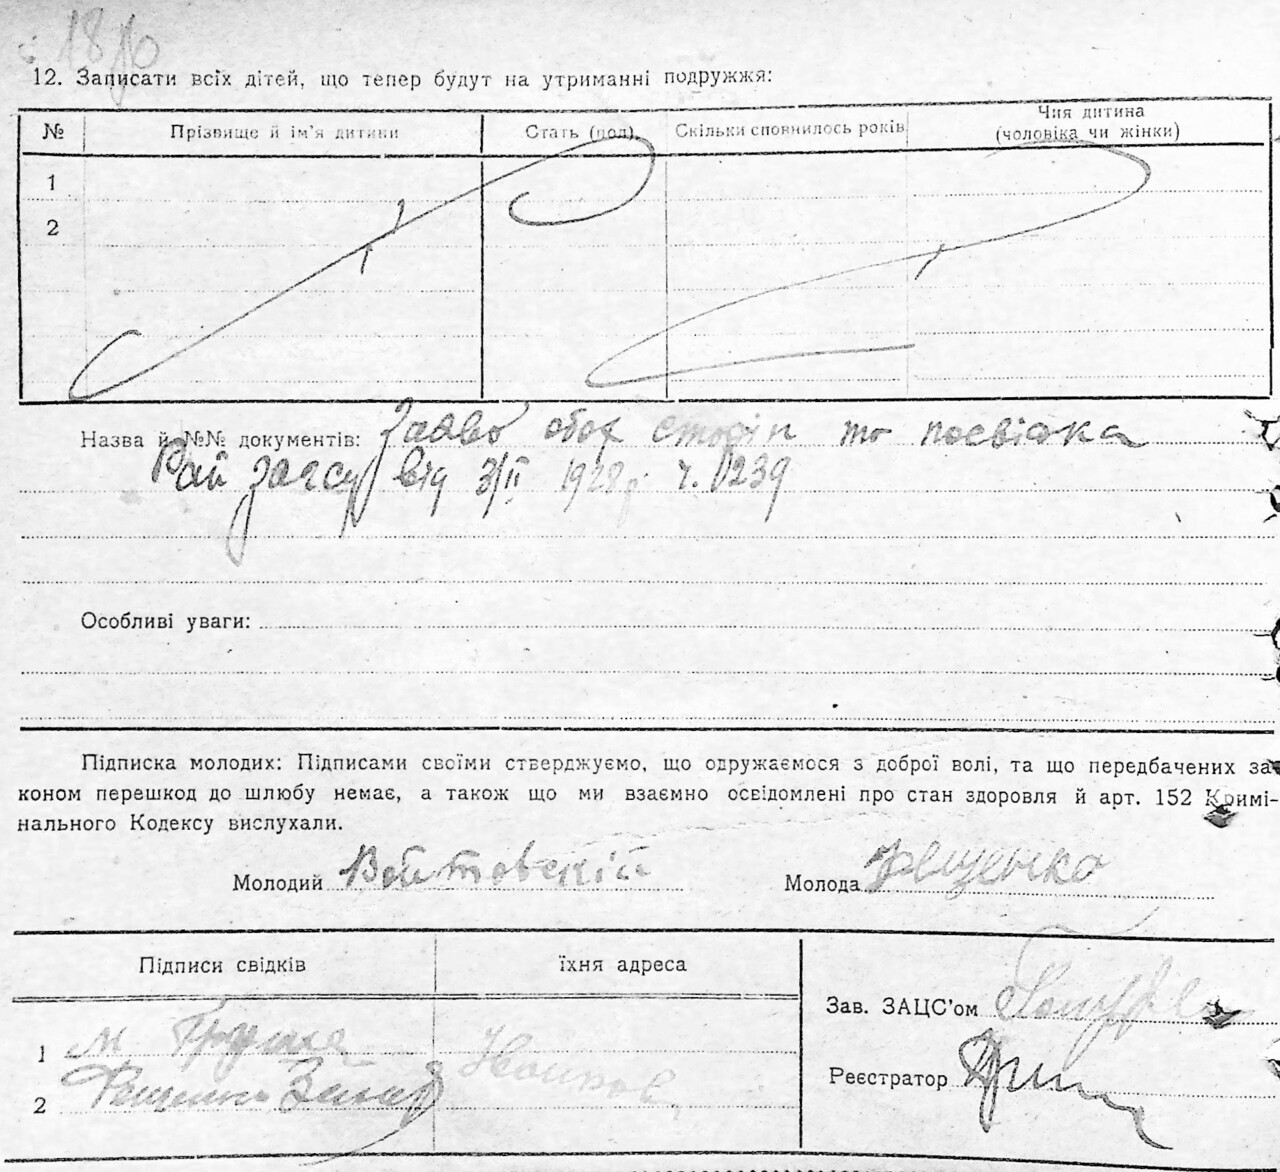 12. Записати всіх дітей, що тепер будут на утриманні подружжя:
№ Прізвище й ім'я дитини Стать (пол) Скільки сповнилось років Чия дитина (чоловіка чи жінки)
1
2
Назва й №№ документів: Заява обох сторін та посвідка
Рай Загсу від 3/II 1928р ч. 1239
Особливі уваги:
Підписка молодих: Підписами своїми стверджуємо, що одружаємося з доброї волі, та що передбачених за-
коном перешкод до шлюбу немає, а також що ми взаємно освідомлені про стан здоровля й арт. 152 Кримі-
нального Кодексу вислухали.
Молодий Войтовскій Молода Фещенко
Підписи свідків їхня адреса
Зав. ЗАЦС'ом
1 М
Реєстратор
2